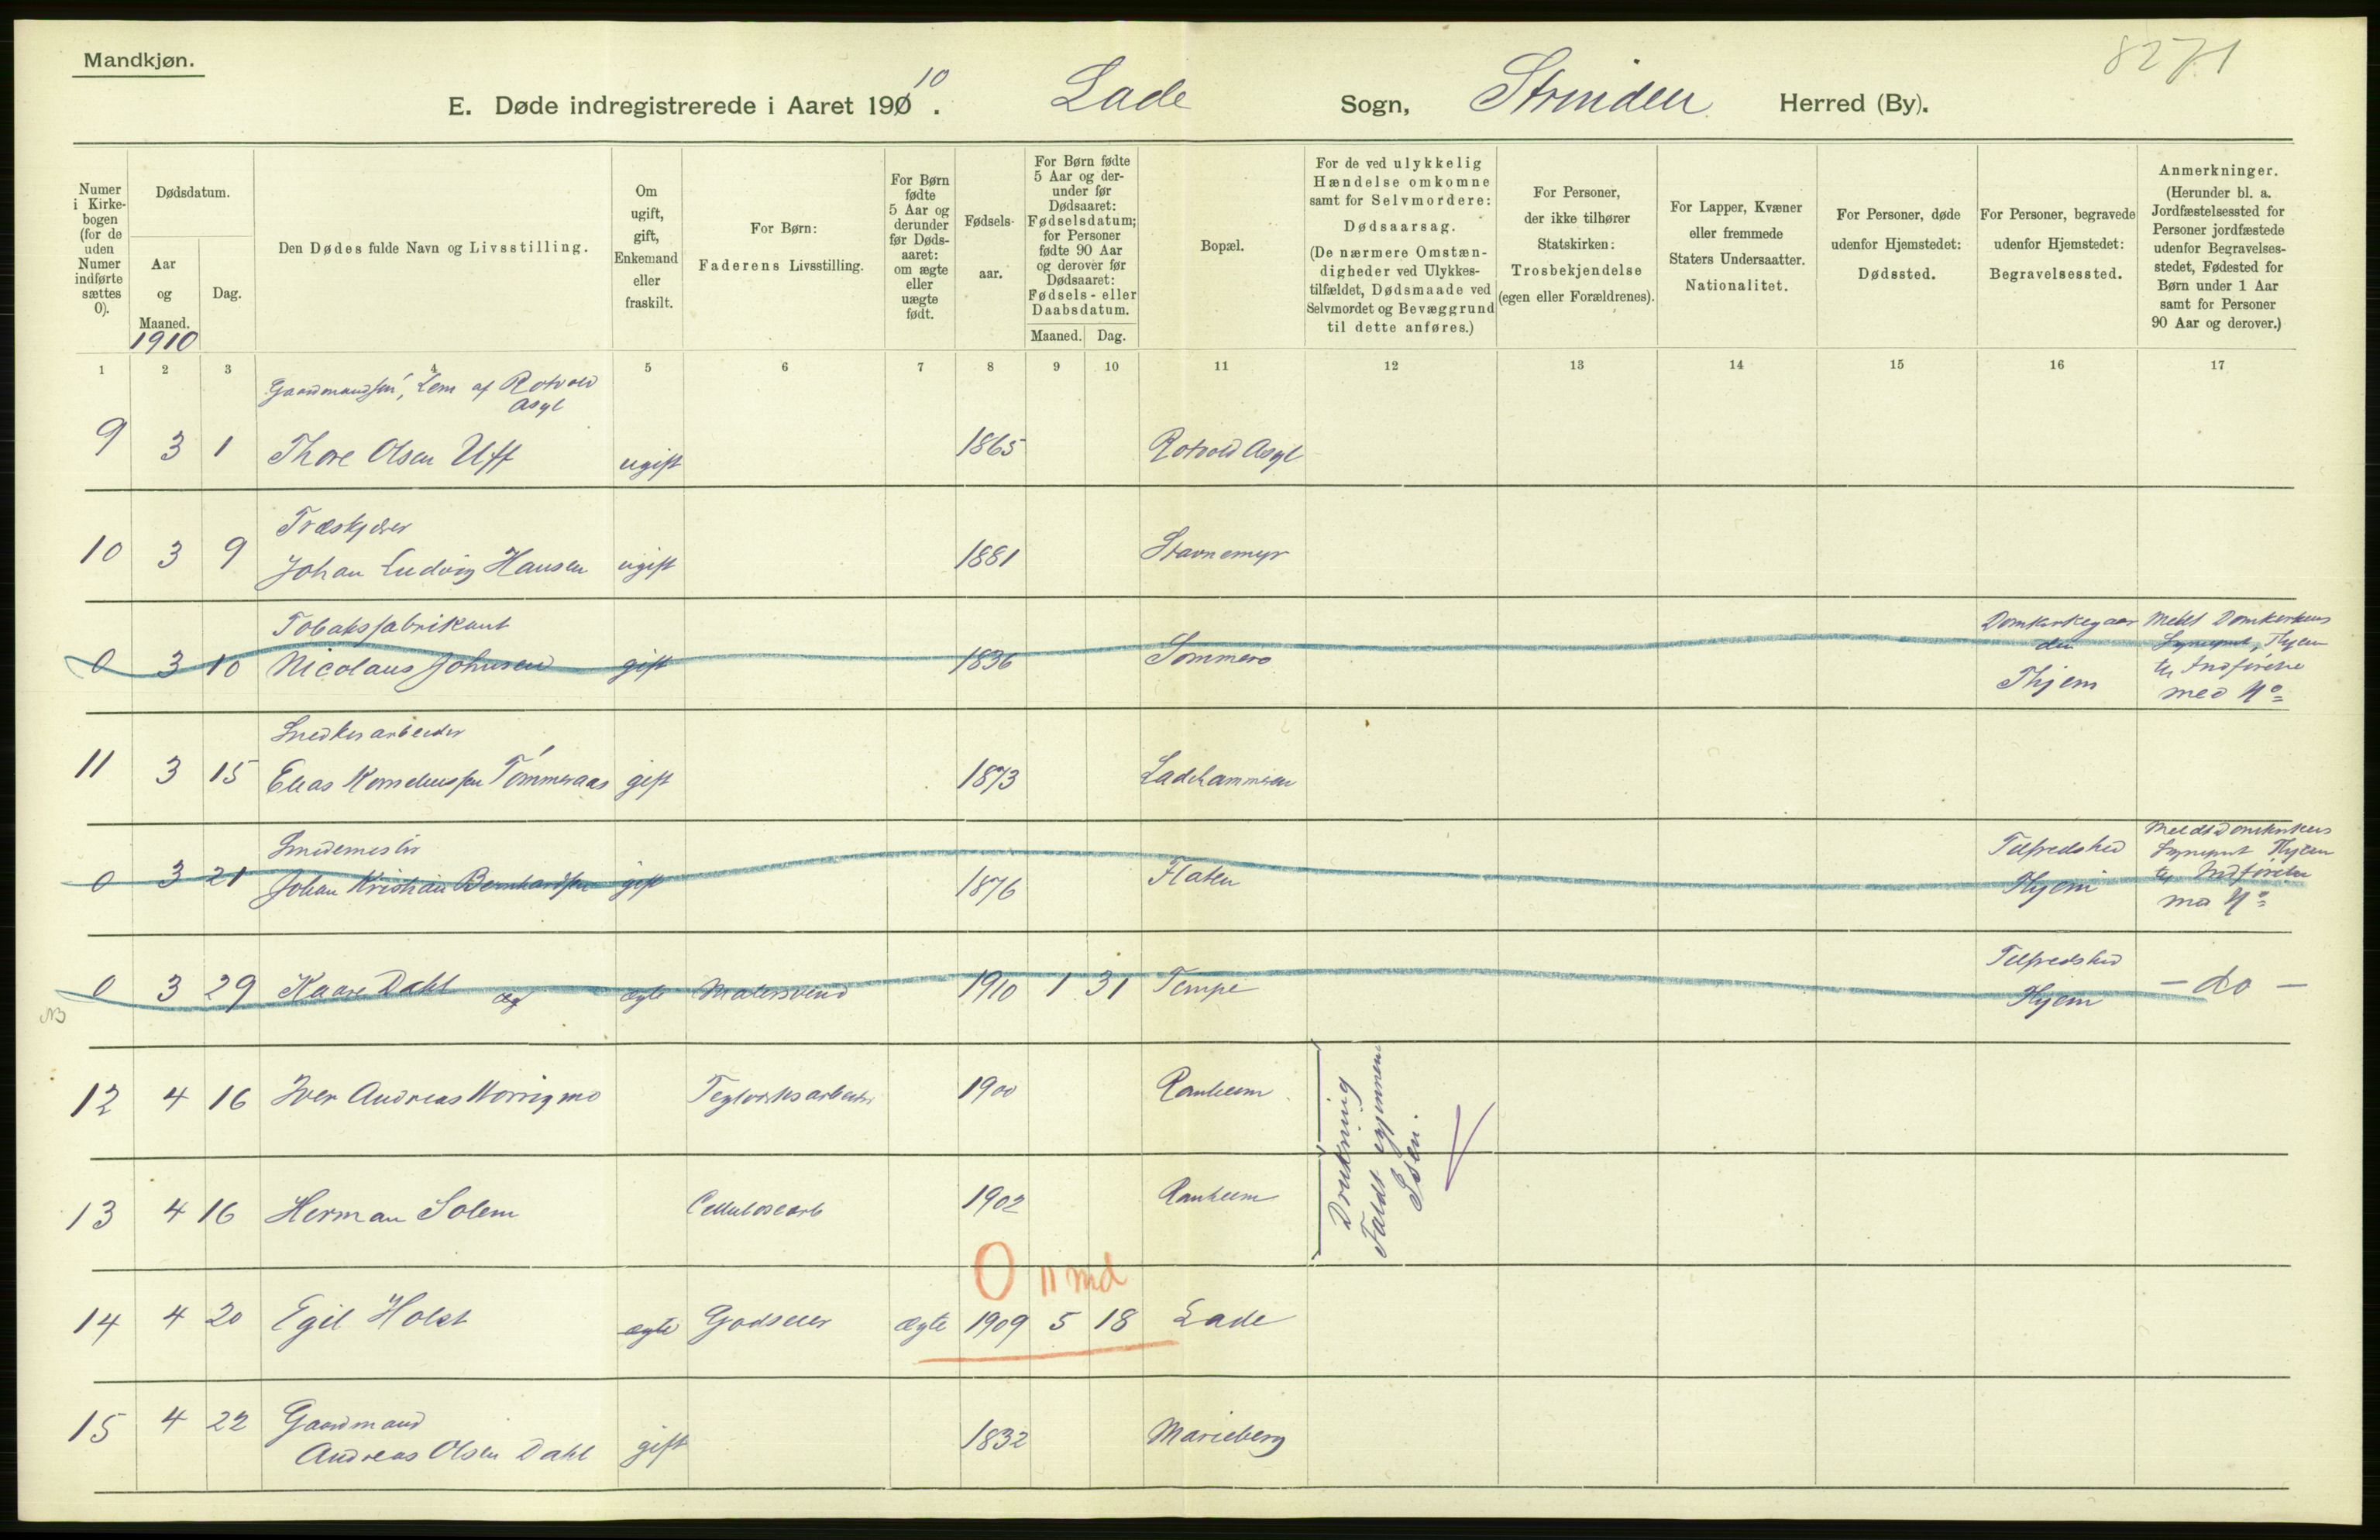 Mandkjøn.
8271
E. Døde indregistrerede i Aaret 1910. Lade Sogn, Strinden Herred (By).
Numer i Kirkebogen (for de uden Numer indførte sættes 0).
Dødsdatum.
Aar og Maaned.
1910
Dag.
Den Dødes fulde Navn og Livsstilling.
Om ugift, gift, Enkemand eller fraskilt.
For Børn: Faderens Livsstilling.
For Børn fødte 5 Aar og derunder før Dødsaaret: om ægte eller uægte født.
Fødselsaar.
For Børn fødte 5 Aar og derunder før Dødsaaret: Fødselsdatum; for Personer fødte 90 Aar og derover før Dødsaaret: Fødsels- eller Daabsdatum.
Maaned. Dag.
Bopæl.
For de ved ulykkelig Hændelse omkomne samt for Selvmordere: Dødsaarsag. (De nærmere Omstændigheder ved Ulykkestilfældet, Dødsmaade ved Selvmordet og Bevæggrund til dette anføres.)
For Personer, der ikke tilhører Statskirken: Trosbekjendelse (egen eller Forældrenes).
For Lapper, Kvæner eller fremmede Staters Undersaatter. Nationalitet.
For Personer, døde udenfor Hjemstedet: Dødssted.
For Personer, begravede udenfor Hjemstedet: Begravelsessted.
Anmerkninger. (Herunder bl. a. Jordfæstelsessted for Personer jordfæstede udenfor Begravelsesstedet, Fødested for Børn under 1 Aar samt for Personer 90 Aar og derover.)
1 2 3 4 5 6 7 8 9 10 11 12 13 14 15 16 17
Gaardmandssøn, Lem af Rotvold Asyl
9 3 1 Thore Olsen Uff ugift 1865 Rotvold Asyl
Træskjærer
10 3 9 Johan Ludvig Hansen ugift 1881 Stavnemyr
Tobaksfabrikant
0 3 10 Nicolaus Johnsen gift 1836 Sommero Domkirkegaarden Thjem
Meldt Domkirkens
til Indførelse
med No
Snedkerarbeider
11 3 15 Elias Korneliussen Tømmeraas gift 1873 Ladehammeren
Smedemester
0 3 21 Johan Kristian Bernhardsen gift 1876 Flaten Tilfredshed Thjem
Meldt Domkirkens
til Indførelse
No
0 3 29 Kaare Dahl æg ægte Malersvend 1910 1 31 Tempe Tilfredshed Thjem - do -
NB
12 4 16 Iver Andreas Morrigmo Teglverksarbeider 1900 Ranheim
Drukning
Faldt igjennem
Isen.
13 4 16 Herman Solem Cellulosearb 1902 Ranheim
0 11 md
14 4 20 Egil Holst ægte Godseier ægte 1909 5 18 Lade
15 4 22 Gaardmand
Andreas Olsen Dahl gift 1832 Marieberg